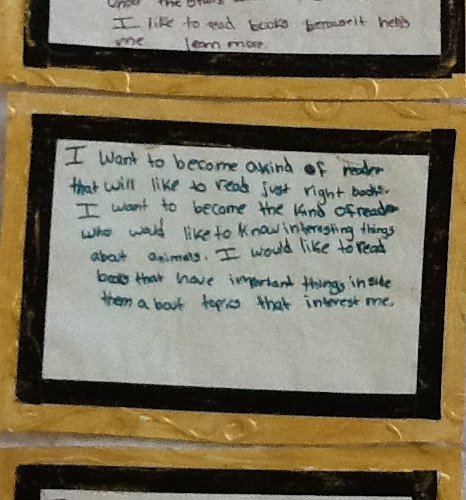 under the
I like to read books because it helps
me learn more.
I want to become a kind of reader
that will like to read just right books.
I want to become the kind of reader
who would like to know interesting things
about animals. I would like to read
books that have important things inside
them about topics that interest me.